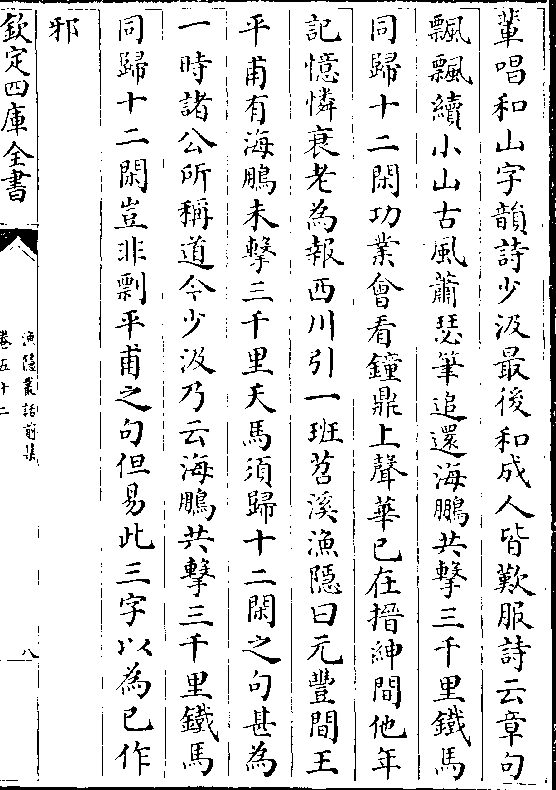 輩唱和山字韻詩少汲最後和成人皆歎服詩云章句
飄飄續小山古風蕭瑟筆追還海鵬共擊三千里鐵馬
同歸十二閑功業會看鐘鼎上聲華已在搢紳間他年
記憶憐衰老為報西川引一班苕溪漁隱曰元豐間王
平甫有海鵬未擊三千里天馬須歸十二閑之句甚為
一時諸公所稱道今少汲乃云海鵬共擊三千里鐵馬
同歸十二閑豈非剽平甫之句但易此三字以為已作
邪
欽定四庫全書
漁隱叢話前集
卷五十二
八